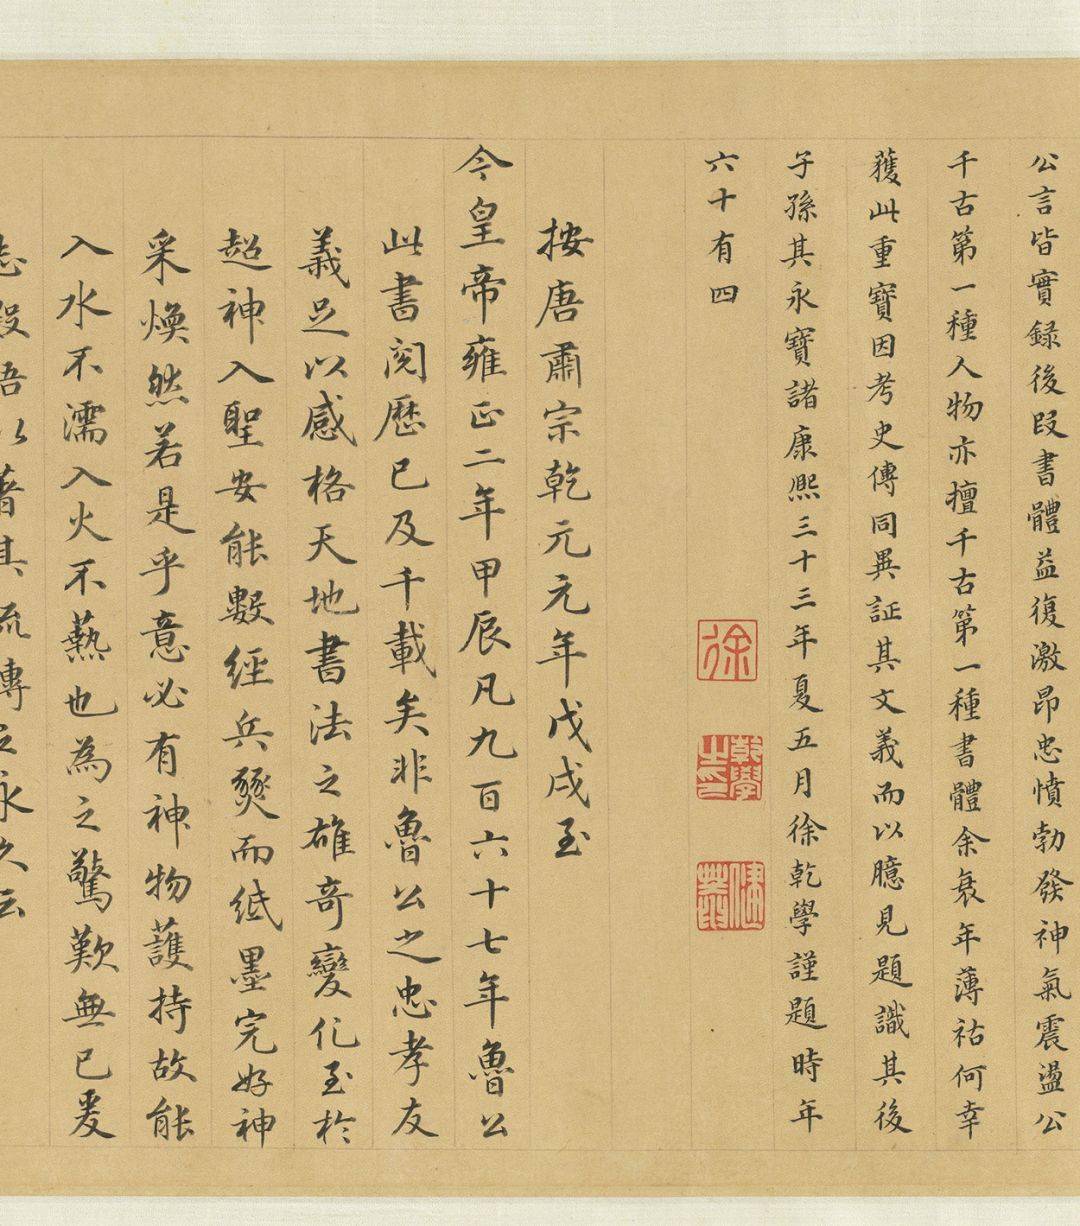 公言皆實録後段書體益復激昂忠憤勃發神氣震盪公
千古第一種人物亦擅千古第一種書體余衰年薄祜何幸
獲此重寶因考史傳同異証其文義而以臆見題識其後
子孫其永寶諸康熙三十三年夏五月徐乾學謹題時年
六十有四
徐
乾學之印
健菴
按唐肅宗乾元元年戊戌至
今皇帝雍正二年甲辰凡九百六十七年魯公
此書閲歷已及千載矣非魯公之忠孝友
義足以感格天地書法之雄奇變化至於
超神入聖安能數經兵燹而紙墨完好神
采煥然若是乎意必有神物護持故能
入水不濡入火不熱也為之驚歎無已爰
志段語以著其流傳之永久云